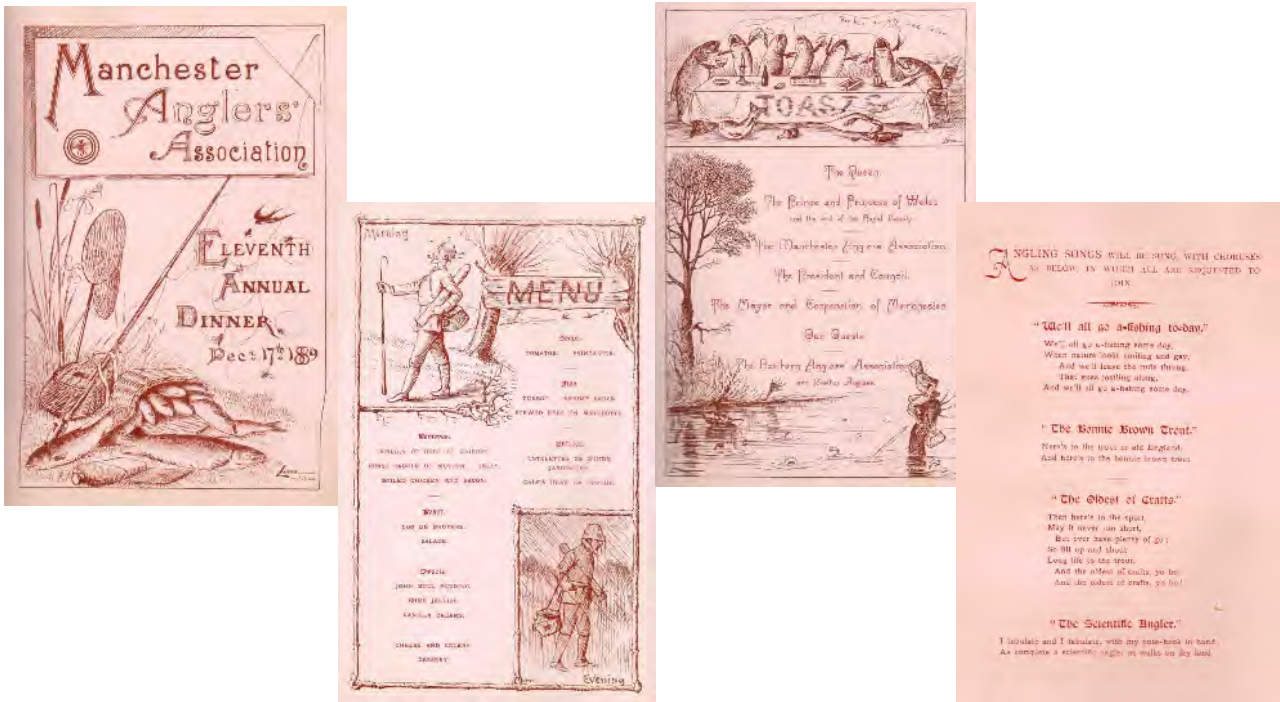 Manchester
Anglers'
Association
ELEVENTH
ANNUAL
DINNER
Dec: 17th 1889
Morning
MENU
SOUPS.
FISH
BOILED CHICKEN AND BACON.
ROAST.
SALADS.
SWEETS.
JOHN BULL PUDDING.
WINE JELLIES.
VANILLA CREAMS.
CHEESE AND CELERY
DESSERT
Evening
TOASTS
The Queen.
The Prince and Princess of Wales
and the rest of the Royal Family.
The Manchester Anglers Association.
The President and Council.
The Mayor and Corporation of Manchester
Our Guests
The Northern Anglers Association
and Kindred Anglers.
ANGLING SONGS WILL BE SUNG, WITH CHORUSES
AS BELOW, IN WHICH ALL ARE REQUESTED TO
JOIN.
"We'll all go a-fishing to-day."
We'll all go a-fishing some day,
When nature looks smiling and gay,
And we'll leave the rude throng,
That goes jostling along,
And we'll all go a-fishing some day.
"The Bonnie Brown Trout."
Here's to the trout of old England,
And here's to the bonnie brown trout
"The Oldest of Crafts."
Then here's to the sport,
May it never run short,
But ever have plenty of go;
So fill up and shout
Long life to the trout,
And the oldest of crafts, yo ho!
And the oldest of crafts, yo ho!
"The Scientific Angler."
I tabulate and I tabulate, with my note-book in hand,
As complete a scientific angler as walks on dry land.